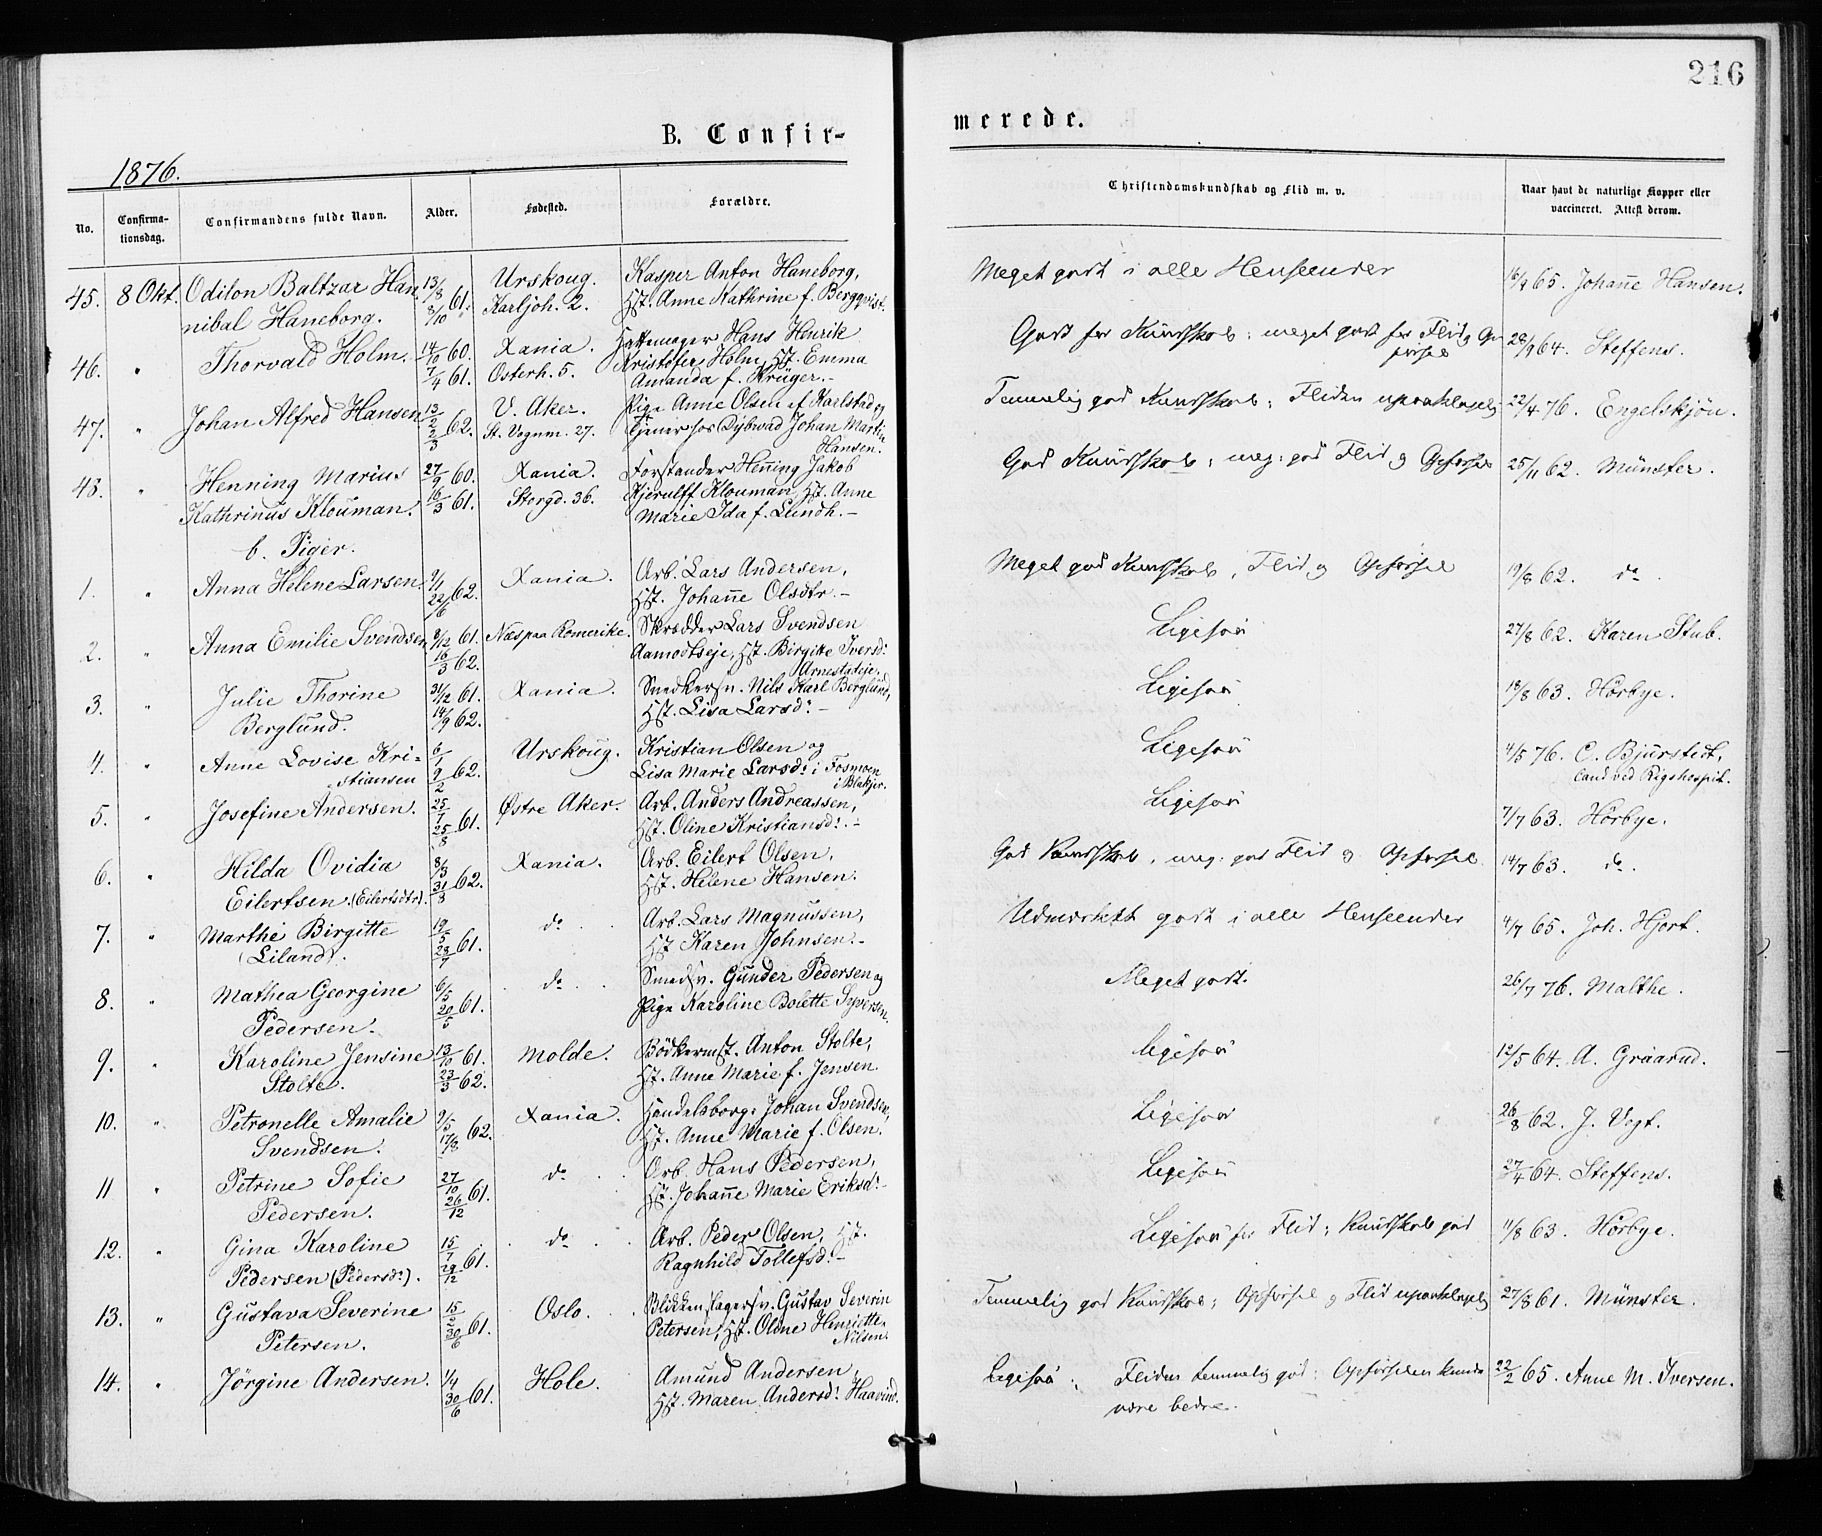 216
B. Confirmerede.
1876.
No. Confirmationsdag. Confirmandens fulde Navn. Alder. Fødested. Forældre. Christendomskundskab og Flid m. v. Naar havt de naturlige Kopper eller vaccineret. Attest derom.
45. 8 Okt. Odilon Baltzar Han 13/8 61. Urskoug. Kasper Anton Haneborg, Meget godt i alle Henseender 16/9 65. Johanne Hansen.
nibal Haneborg. 8/10 Karljoh. 2. Hst. Anne Kathrine f. Bergqvist.
46. " Thorvald Holm. 14/10 60. Xania. Hattemager Hans Henrik Godt for Kundskab; meget godt for Flid og Opførsel 28/9 64. Steffens.
7/4 61. Osterh. 5. Kristofer Holm, Hst. Emma
Amanda f. Krüger.-
47. " Johan Alfred Hansen 13/2 62. V. Aker. Pige Anne Olsen af Karlstad og Temmelig god Kundskab; Fliden upaaklagelig 22/4 76. Engelskjön.
2/3 St. Vognm. 27. Tjener hos Dybwad Johan Martin
Hansen.
48. " Henning Marius 27/9 60. Xania. Forstander Henning Jakob God Kundskab; meg. god Flid og Opførsel 25/11 62. Münster.
Kathrinus Klouman. 16/3 61. Storgd. 36. Kjerulff Klouman, Hst. Anne
Marie Ida f. Lundh.-
b. Piger.
1. " Anna Helene Larsen. 9/1 62. Xania. Arb. Lars Andersen, Meget god Kundskab, Flid og Opførsel 19/8 62. do.
22/6 Hst. Johanne Olsdtr.-
2. " Anna Emilie Svendsen 8/12 61. Næs paa Romerike. Skrædder Lars Svendsen Ligesaa 27/8 62. Karen Stub.
16/3 62. Aamodtseje, Hst. Birgitte Iversd.
Arnestadeje.
3. " Julie Thorine 31/12 61. Xania. Snedkersv. Nils Karl Berglund, Ligesaa 18/8 63. Hörbye.
Berglund. 14/9 62. Hst. Lisa Larsd.-
4. " Anne Lovise Kri- 6/1 62. Urskoug. Kristian Olsen og Ligesaa 4/5 76. C. Bjurstedt,
stiansen 9/2 Lisa Marie Larsd. i Fosmoen Cand ved Rigshospit.
i Blakjer.
5. " Josefine Andersen. 25/7 61. Østre Aker. Arb. Anders Andreassen, Ligesaa 7/7 63. Hörbye.
25/8 Hst. Oline Kristiansd.-
6. " Hilda Ovidia 8/3 62. Xania. Arb. Eilert Olsen, God Kundskab, meg. god Flid og Opførsel 14/7 63. do.
Eilertsen. (Eilertsdtr). 31/3 Hst. Helene Hansen.
7. " Marthe Birgitte 19/5 61. do. Arb. Lars Magnussen, Udmærkett godt i alle Henseender 4/7 65. Joh. Hjort.
Liland. 23/7 Hst. Karen Johnsen.-
8. " Mathea Georgine 6/5 61. do. Smedsv. Gunder Pedersen og Meget godt. 26/7 76. Malthe.
Pedersen. 20/5 Pige Karoline Bolette Syversen.
9. " Karoline Jensine 13/10 61. Molde. Bödkermst. Anton Stolte, Ligesaa 12/5 64. A. Graarud.
Stolte. 23/3 62. Hst. Anne Marie f. Jensen.
10. " Petronelle Amalie 9/5 62. Xania. Handelsborg: Johan Svendsen, Ligesaa 26/8 62. J. Vogt.
Svendsen. 17/8 Hst. Anne Marie f. Olsen.
11 " Petrine Sofie 27/10 61. do. Arb. Hans Pedersen, Ligesaa 27/4 64. Steffens.
Pedersen. 26/12 Hst. Johanne Marie Eriksd.-
12. " Gina Karoline 15/7 61. do. Arb. Peder Olsen, Hst. Ligesaa for Flid; Kundskab god 11/8 63. Hörbye.
Pedersen (Pedersd.). 29/12 Ragnhild Tollefsd.-
13. " Gustava Severine 15/2 61. Oslo. Blikkenslagersv. Gustav Severin Temmelig god Kundskab; Opførsel og Flid upaaklagelig 27/8 61. Münster.
Petersen. 30/6 Petersen, Hst. Oline Henriette
Nilsen.
14. " Jörgine Andersen. 1/4 61. Hole. Amund Andersen, Ligesaa; Fliden temmelig god; Opførselen kunde 22/2 65. Anne M. Iversen.
30/6 Hst. Maren Andersd. Haavind. være bedre.